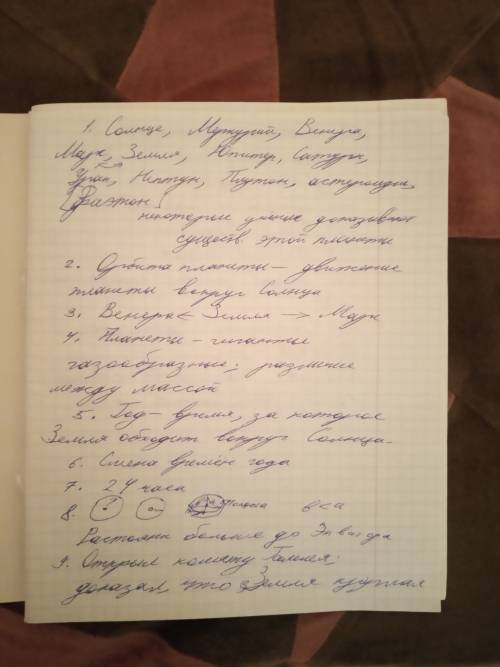 1. Солнце, Меркурий, Венера,
Марс, Земля, Юпитер, Сатурн,
Уран, Нептун, Плутон, астероиды,
[Фаэтон]
некоторые ученые доказывают
существ. этой планеты
2. Орбита планеты – движение
планеты вокруг Солнца
3. Венера < Земля —> Марс
4. Планеты – гиганты
газообразные; различие
между массой
5. Год – время, за которое
Земля обходит вокруг Солнца.
6. Смена времён года
7. 24 часа
8. в < а
Расстояние больше до Экватора
9. Открыл комету Галлея;
доказал, что Земля круглая